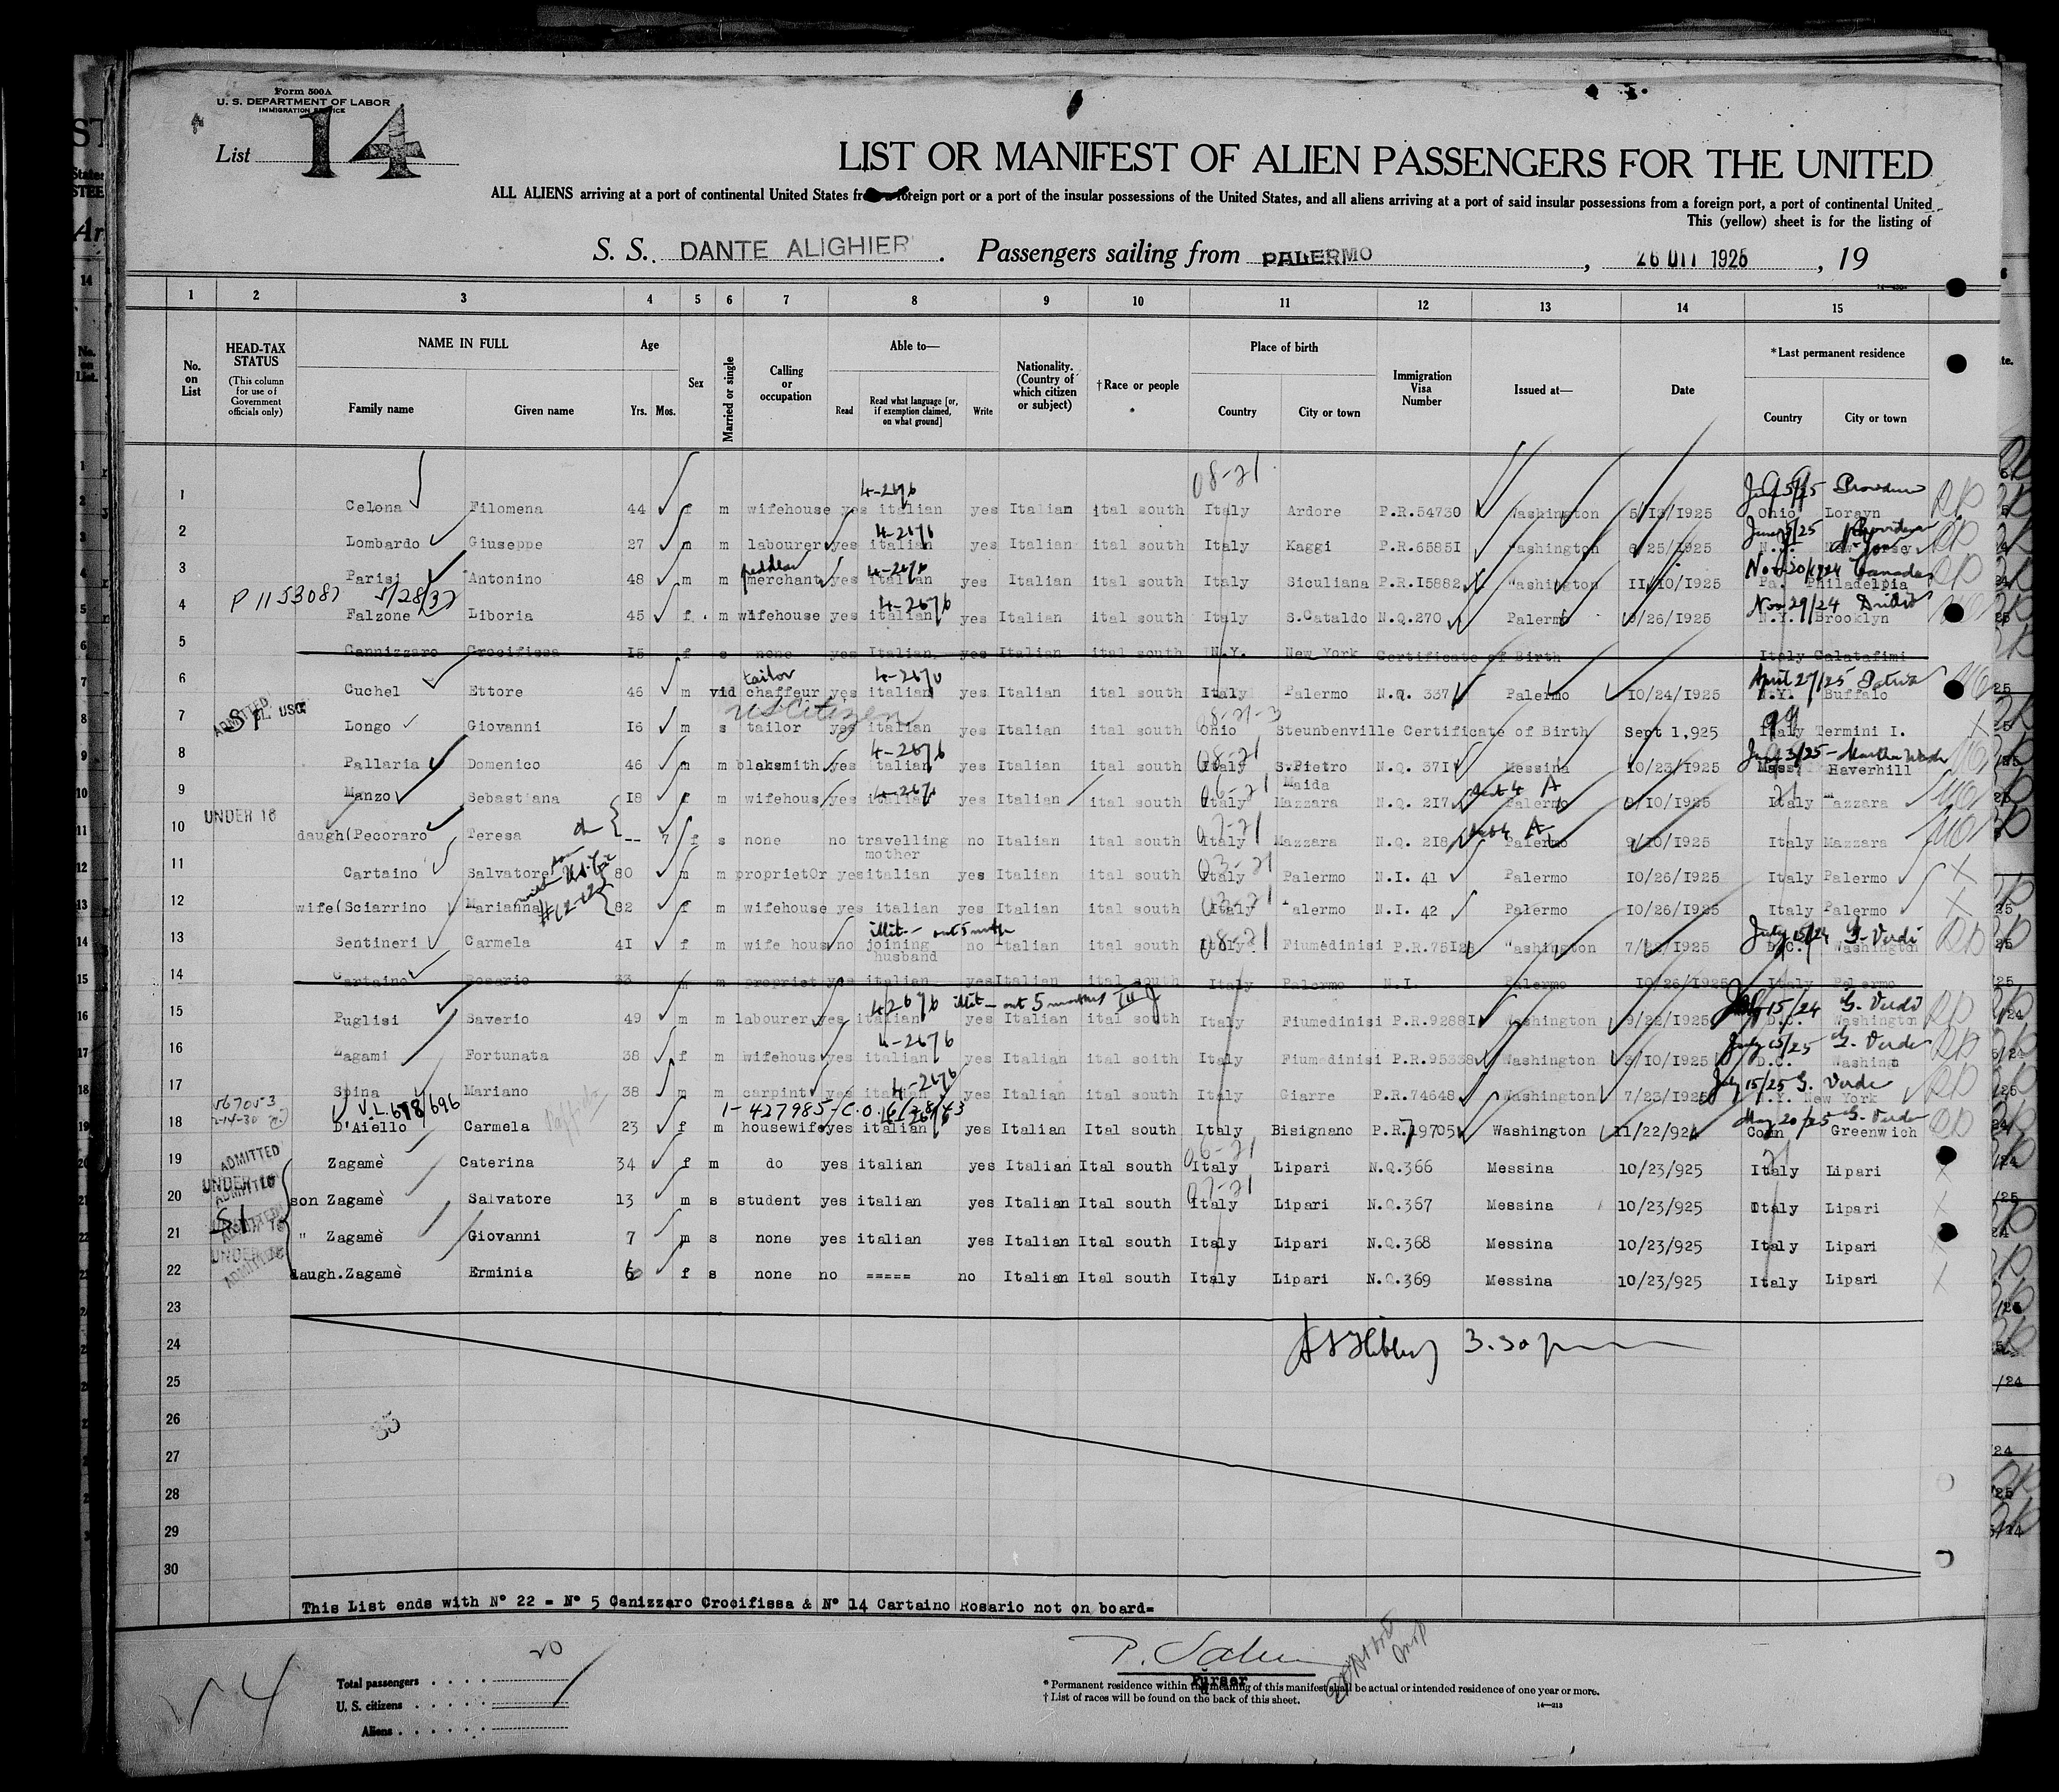 Form 500A
U. S. DEPARTMENT OF LABOR
IMMIGRATION SERVICE
List 14
LIST OR MANIFEST OF ALIEN PASSENGERS FOR THE UNITED
ALL ALIENS arriving at a port of continental United States from a foreign port or a port of the insular possessions of the United States, and all aliens arriving at a port of said insular possessions from a foreign port, a port of continental United
This (yellow) sheet is for the listing of
S. S. DANTE ALIGHIERI. Passengers sailing from PALERMO, 26 OTT 1925, 19
1 2 3 4 5 6 7 8 9 10 11 12 13 14 15
No. on List
HEAD-TAX STATUS (This column for use of Government officials only)
NAME IN FULL
Family name Given name
Age
Yrs. Mos.
Sex
Married or single
Calling or occupation
Able to—
Read Read what language [or, if exemption claimed, on what ground] Write
Nationality. (Country of which citizen or subject)
† Race or people
Place of birth
Country City or town
Immigration Visa Number
Issued at—
Date
*Last permanent residence
Country City or town
08-21 4-2676 Providence
1 Celona Filomena 44 f m wifehouse yes italian yes Italian ital south Italy Ardore P.R.54730 Washington 5/13/1925 Ohio Lorayn
4-2676
2 Lombardo Giuseppe 27 m m labourer yes italian yes Italian ital south Italy Kaggi P.R.6585I Washington 6/25/1925 N.J. New Jersey
peddler 4-2676 Nov 20/1924 Canada
3 Parisi Antonino 48 m m merchant yes italian yes Italian ital south Italy Siculiana P.R.I5882 Washington II/10/1925 Pa. Philadelpia
P 1153087 5/28/37 4-2676 Nov 29/24
4 Falzone Liboria 45 f m wifehouse yes italian yes Italian ital south Italy S.Cataldo N.Q.270 Palermo 9/26/I925 N.Y. Brooklyn
5 Cannizzaro Crocifissa I5 f s none yes Italian yes Italian ital south N.Y. New York Certificate of Birth Italy Calatafimi
tailor 4-2670 April 27/25
6 Cuchel Ettore 46 m vid chaffeur yes italian yes Italian ital south Italy Palermo N.Q. 337 Palermo IO/24/I925 N.Y. Buffalo
ADMITTED SI USC US Citizen 08-21-3
7 Longo Giovanni I6 m s tailor yes italian yes Italian ital south Ohio Steunbenville Certificate of Birth Sept 1,925 Italy Termini I.
4-2676 08-21 Martha Wash
8 Pallaria Domenico 46 m m blaksmith yes italian yes Italian ital south Italy S.Pietro Maida N.Q. 37I Messina IO/23/I925 Mass Haverhill
4-2676
9 Manzo Sebastiana I8 f m wifehous yes italian yes Italian ital south Italy Mazzara N.Q. 2I7 Palermo 9/IO/I925 Italy Mazzara
UNDER 16 07-21
10 daugh(Pecoraro Teresa -- 7 f s none no travelling mother no Italian ital south Italy Mazzara N.Q. 2I8 Palermo 9/IO/I925 Italy Mazzara
03-21
11 Cartaino Salvatore 80 m m proprietOr yes italian yes Italian ital south Italy Palermo N.I. 41 Palermo IO/26/I925 Italy Palermo
03-21
12 wife(Sciarrino Marianna 82 f m wifehouse yes italian yes Italian ital south Italy Palermo N.I. 42 Palermo IO/26/I925 Italy Palermo
08-21 July 15/24 G. Verdi
13 Sentineri Carmela 4I f m wife hous no joining husband no Italian ital south Italy Fiumedinisi P.R.75I28 Washington 7/22/I925 D.C. Washington
14 Cartaino Rosario 33 m m propriet yes italian yes Italian ital south Italy Palermo N.I. Palermo IO/26/I925 Italy Palermo
42676 illit - out 5 months July 15/24 G. Verdi
15 Puglisi Saverio 49 m m labourer yes italian yes Italian ital south Italy Fiumedinisi P.R.9288I Washington 9/22/I925 D.C. Washington
4-2676 July 15/25 G. Verdi
16 Zagami Fortunata 38 f m wifehous yes italian yes Italian ital soith Italy Fiumedinisi P.R.95338 Washington 3/10/I925 D.C. Washingn
4-2676 July 15/25 G. Verdi
17 Spina Mariano 38 m m carpint yes italian yes Italian ital south Italy Giarre P.R.74648 Washington 7/25/I925 N.Y. New York
567053 2-14-30 V.L.618/696 1-427985-C.O. 6/28/43 May 20/25 G. Verdi
18 D'Aiello Carmela 23 f m housewife yes italian yes Italian Ital south Italy Bisignano P.R.19705 Washington 11/22/924 Conn Greenwich
ADMITTED 06-21
19 Zagamè Caterina 34 f m do yes italian yes Italian Ital south Italy Lipari N.Q.366 Messina 10/23/925 Italy Lipari
UNDER 16 ADMITTED 07-21
20 son Zagamè Salvatore 13 m s student yes italian yes Italian Ital south Italy Lipari N.Q.367 Messina 10/23/925 Italy Lipari
SI ADMITTED
21 " Zagamè Giovanni 7 m s none yes italian yes Italian Ital south Italy Lipari N.Q.368 Messina 10/23/925 Italy Lipari
UNDER 16 ADMITTED
22 daugh.Zagamè Erminia 6 f s none no ===== no Italian Ital south Italy Lipari N.Q.369 Messina 10/23/925 Italy Lipari
23
24 3.30 pm
25
26 35
27
28
29
30
This List ends with N° 22 = N° 5 Canizzaro Crocifissa & N° 14 Cartaino Rosario not on board=
14
Total passengers 20
U. S. citizens
Aliens
Purser
* Permanent residence within the meaning of this manifest shall be actual or intended residence of one year or more.
† List of races will be found on the back of this sheet.
14—213